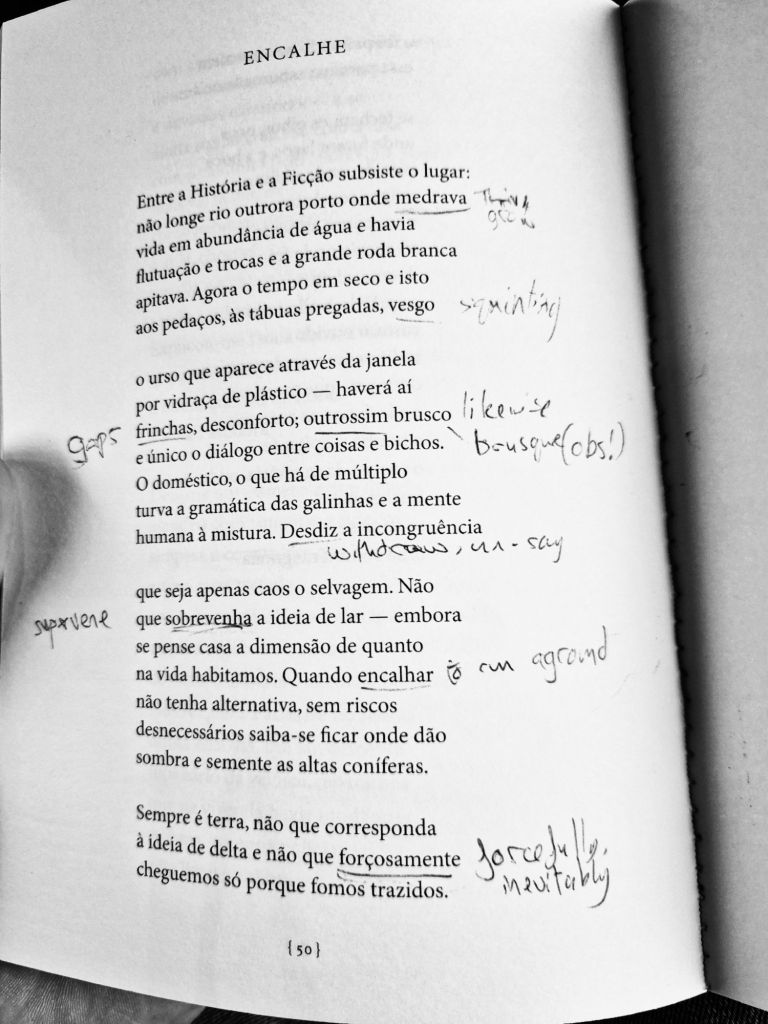 ENCALHE
Entre a História e a Ficção subsiste o lugar:
não longe rio outrora porto onde medrava thriv,
grow
vida em abundância de água e havia
flutuação e trocas e a grande roda branca
apitava. Agora o tempo em seco e isto
aos pedaços, às tábuas pregadas, vesgo squinting
o urso que aparece através da janela
por vidraça de plástico — haverá aí
gaps frinchas, desconforto; outrossim brusco likewise
e único o diálogo entre coisas e bichos. brusque (obs!)
O doméstico, o que há de múltiplo
turva a gramática das galinhas e a mente
humana à mistura. Desdiz a incongruência
withdraw, un-say
que seja apenas caos o selvagem. Não
supervene que sobrevenha a ideia de lar — embora
se pense casa a dimensão de quanto
na vida habitamos. Quando encalhar to run aground
não tenha alternativa, sem riscos
desnecessários saiba-se ficar onde dão
sombra e semente as altas coníferas.
Sempre é terra, não que corresponda
à ideia de delta e não que forçosamente forcefully,
cheguemos só porque fomos trazidos. inevitably
{ 50 }